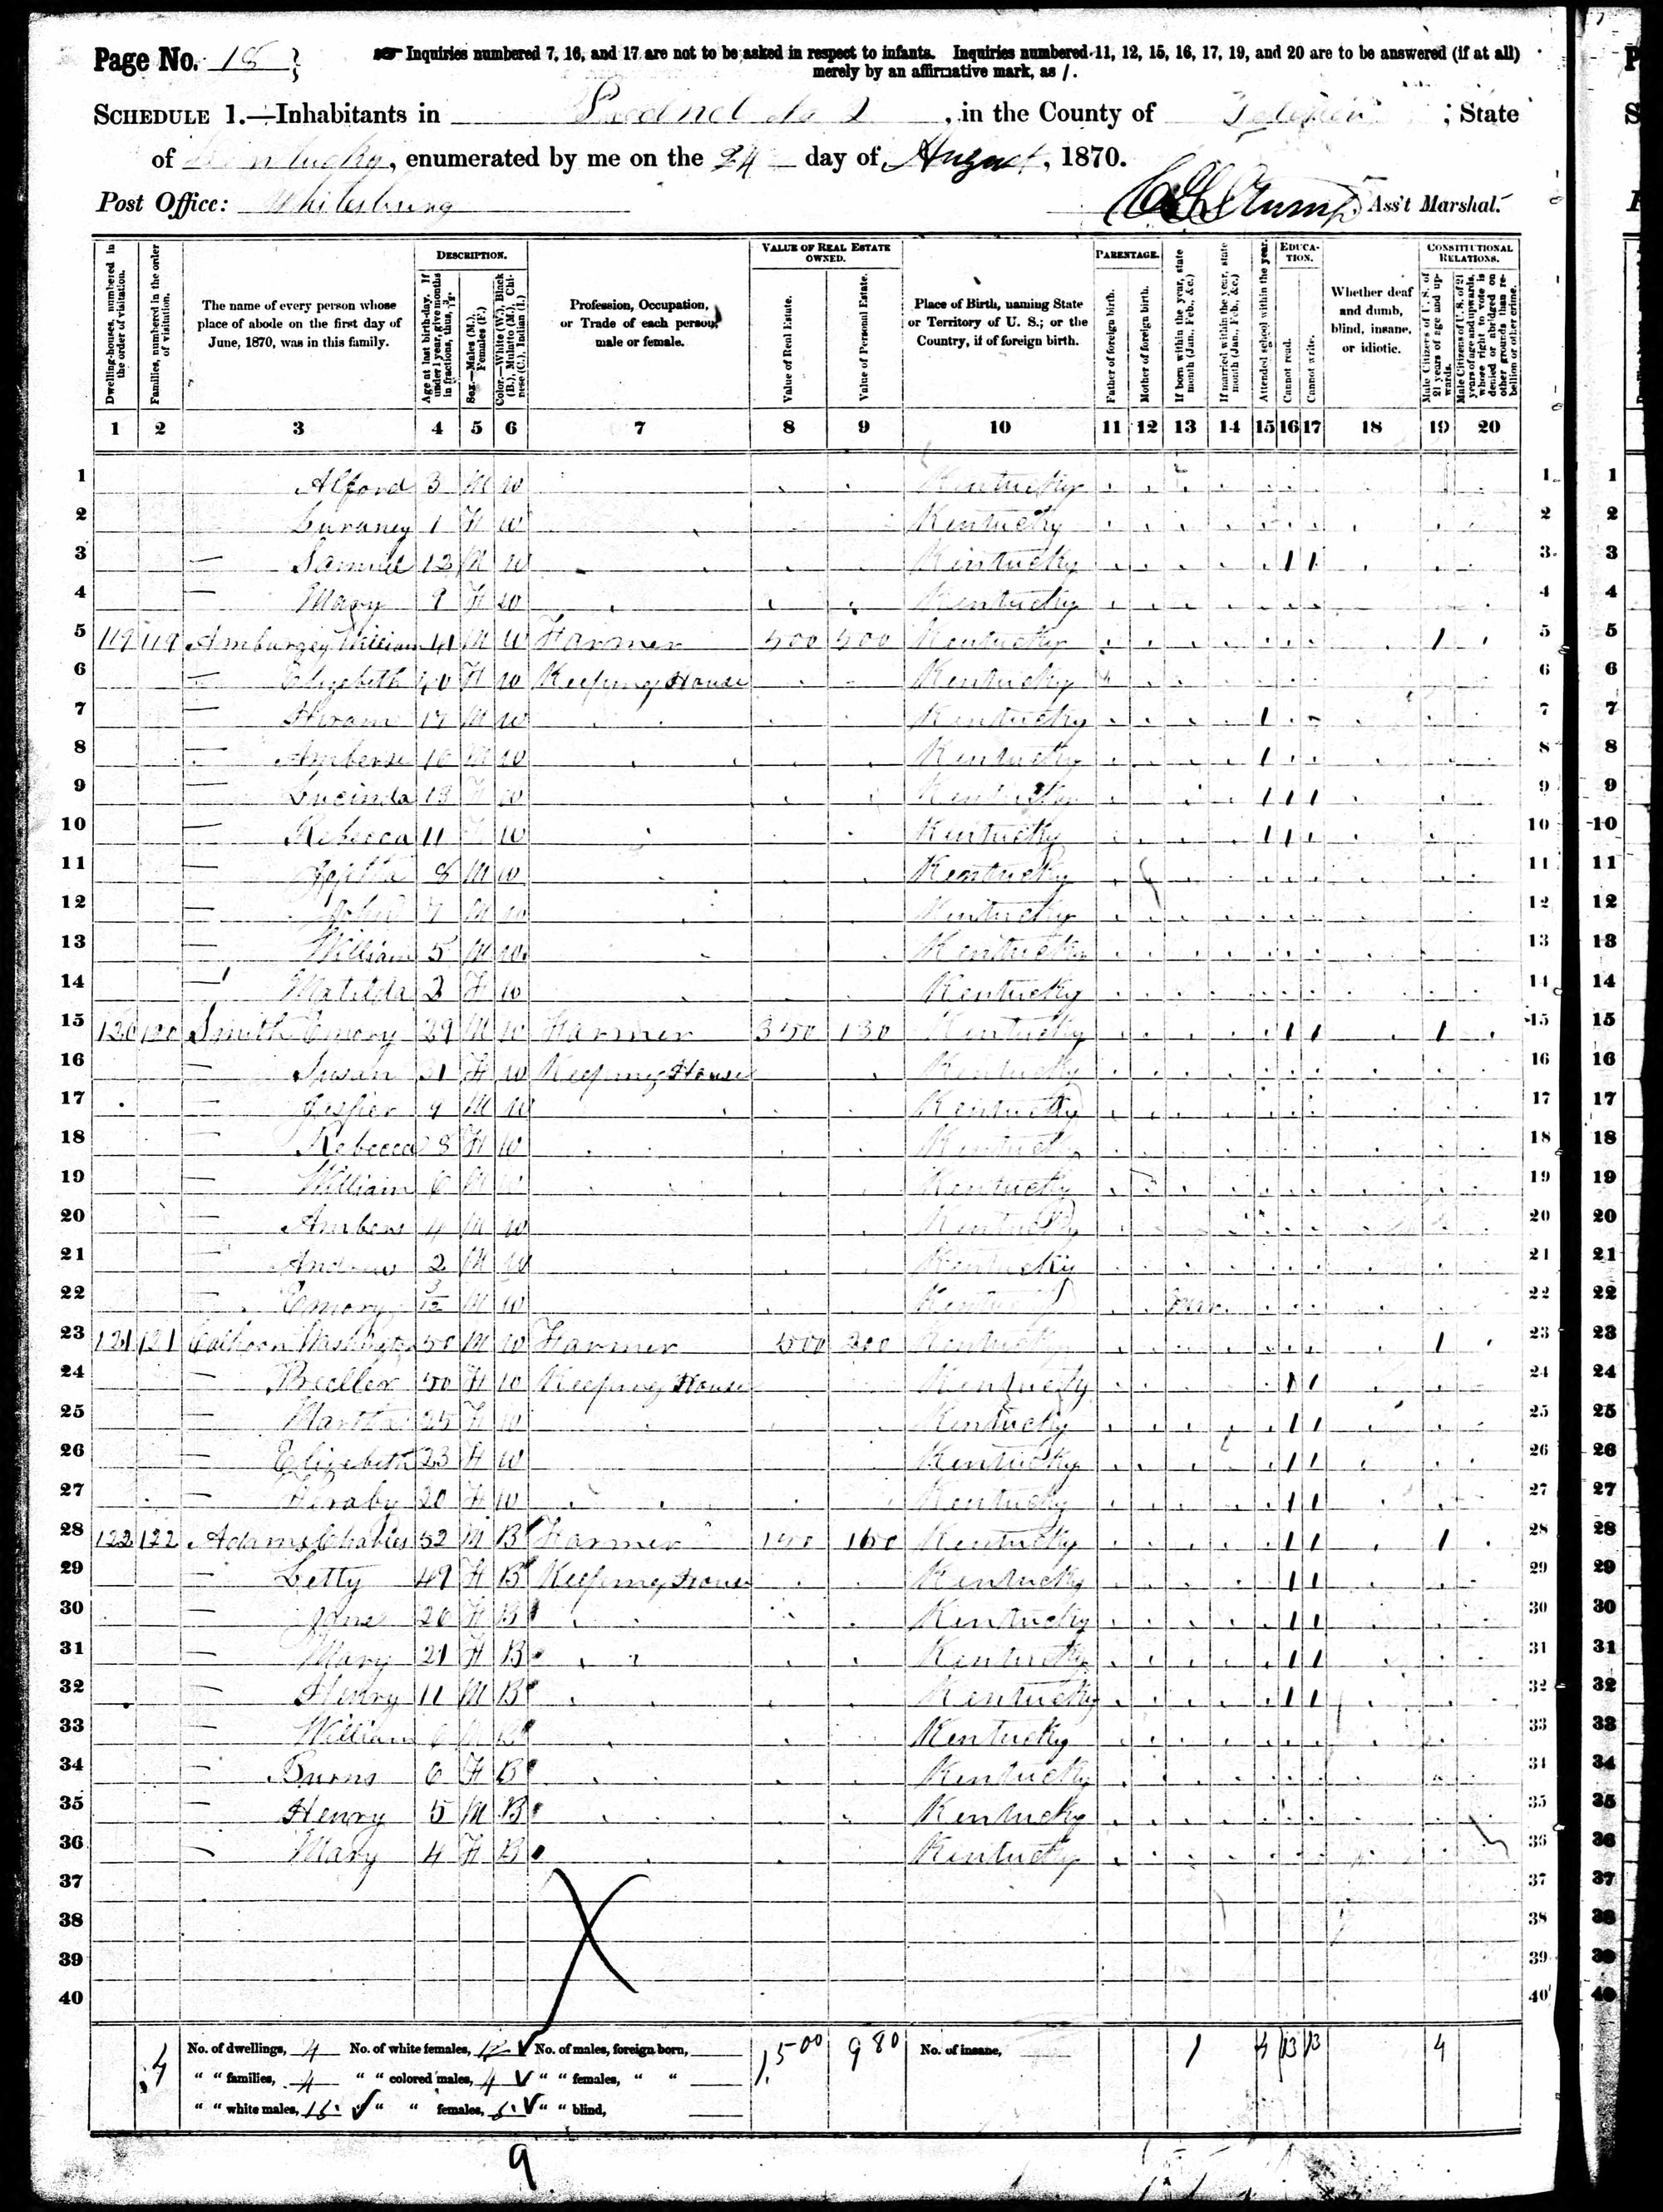 Page No. 18
Inquiries numbered 7, 16, and 17 are not to be asked in respect to infants. Inquiries numbered 11, 12, 15, 16, 17, 19, and 20 are to be answered (if at all)
merely by an affirmative mark, as /.
SCHEDULE 1.—Inhabitants in , in the County of ; State
of Kentucky, enumerated by me on the 24 day of August, 1870.
Post Office: Whitesburg Ass't Marshal.
Dwelling-houses, numbered in the order of visitation.
Families, numbered in the order of visitation.
The name of every person whose place of abode on the first day of June, 1870, was in this family.
DESCRIPTION.
Age at last birth-day. If under 1 year, give months in fractions, thus, 3/12.
Sex.—Males (M.), Females (F.)
Color.—White (W.), Black (B.), Mulatto (M.), Chinese (C.), Indian (I.)
Profession, Occupation, or Trade of each person, male or female.
VALUE OF REAL ESTATE OWNED.
Value of Real Estate.
Value of Personal Estate.
Place of Birth, naming State or Territory of U. S.; or the Country, if of foreign birth.
PARENTAGE.
Father of foreign birth.
Mother of foreign birth.
If born within the year, state month (Jan. Feb., &c.)
If married within the year, state month (Jan. Feb., &c.)
Attended school within the year.
EDUCATION.
Cannot read.
Cannot write.
Whether deaf and dumb, blind, insane, or idiotic.
CONSTITUTIONAL RELATIONS.
Male Citizens of U. S. of 21 years of age and upwards.
Male Citizens of U. S. of 21 years of age and upwards, whose right to vote is denied or abridged on other grounds than rebellion or other crime.
1 2 3 4 5 6 7 8 9 10 11 12 13 14 15 16 17 18 19 20
1 Alford 3 M W Kentucky 1
2 Luraney 1 F W Kentucky 2
3 — Samuel 13 M W Kentucky 1 1 3
4 — Mary 9 F W Kentucky 4
5 119 119 Amburgey William 41 M W Farmer 500 500 Kentucky 1 5
6 — Elizabeth 40 F W Keeping House Kentucky 6
7 — Hiram 17 M W Kentucky 1 7
8 — 16 M W Kentucky 1 8
9 — Lucinda 13 F W Kentucky 1 1 1 9
10 — Rebecca 11 F W Kentucky 1 1 1 10
11 — 8 M W Kentucky 11
12 — John 7 M W Kentucky 12
13 — William 5 M W Kentucky 13
14 — Matilda 2 F W Kentucky 14
15 120 120 Smith Emory 29 M W Farmer 350 130 Kentucky 1 1 1 15
16 — Susan 31 F W Keeping House Kentucky 16
17 — 9 M W Kentucky 17
18 — Rebecca 8 F W Kentucky 18
19 — William 6 M W Kentucky 19
20 — 4 M W Kentucky 20
21 — Andrew 2 M W Kentucky 21
22 — Emory 3/12 M W Kentucky Mar 22
23 121 121 Calhoon Washington 50 M W Farmer 500 200 Kentucky 1 23
24 — 50 F W Keeping House Kentucky 1 1 24
25 — Martha 25 F W Kentucky 1 1 25
26 — Elizabeth 23 F W Kentucky 1 1 26
27 — 20 F W Kentucky 1 1 27
28 122 122 Adams Charles 52 M B Farmer 150 150 Kentucky 1 1 1 28
29 — Letty 49 F B Keeping House Kentucky 1 1 29
30 — Jane 26 F B Kentucky 1 1 30
31 — Mary 21 F B Kentucky 1 1 31
32 — Henry 11 M B Kentucky 1 1 32
33 — William 6 M B Kentucky 33
34 — Burns 6 F B Kentucky 34
35 — Henry 5 M B Kentucky 35
36 — Mary 4 F B Kentucky 36
37 37
38 38
39 39
40 40
No. of dwellings, 4 No. of white females, 12 No. of males, foreign born, 1,500 980 No. of insane, 1 4 13 13 4
" " families, 4 " " colored males, 4 " " females, " "
" " white males, 15 " " females, 5 " " blind,
9